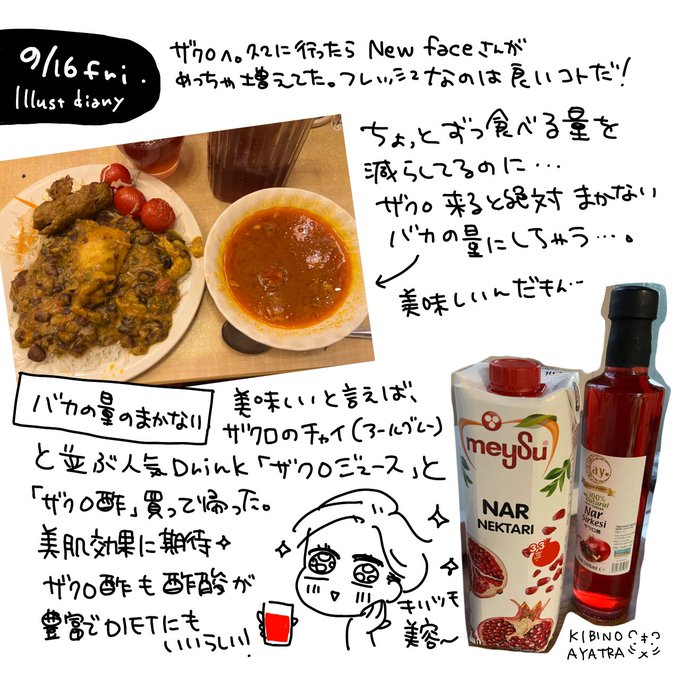 9/16 fri.
Illust diary
ザクロへ。久々に行ったら New faceさんが
めっちゃ増えてた。フレッシュなのは良いコトだ!
ちょっとずつ食べる量を
減らしてるのに…
ザクロ 来ると絶対 まかない
バカの量にしちゃう…。
美味しいんだもん…
バカの量のまかない
美味しいと言えば、
ザクロのチャイ(アールグレー)
と並ぶ人気Drink「ザクロジュース」と
「ザクロ酢」買って帰った。
美肌効果に期待
ザクロ酢も酢酸が
豊富でDIETにも
いいらしい!
キレイで
美容〜
meysu
NAR
NEKTARI
100%
Natural
Nar
Sirkesi
ザクロ酢
KIBINO
AYATRA